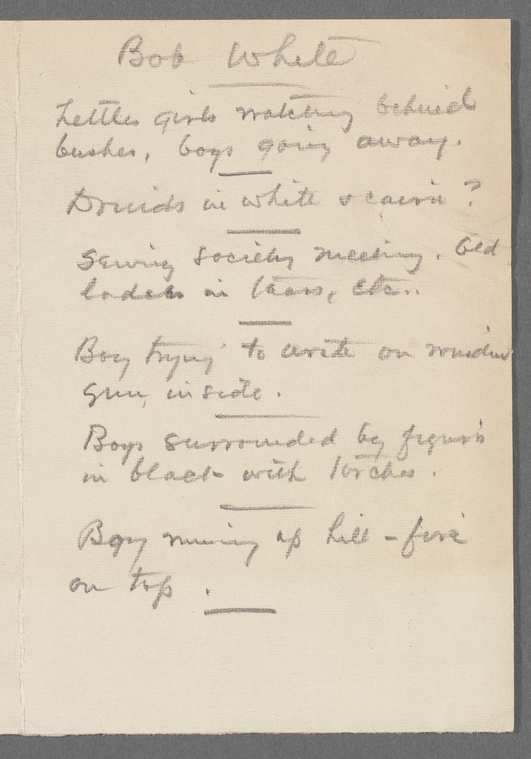 Bob White
Little girls watching behind
bushes, boys going away.
Druids in white &         ?
Sewing society meeting. Old
ladies in tears, etc..
Boy trying to write on window
gun, inside.
Boys surrounded by figures
in black with torches.
Boy running up hill - fire
on top.